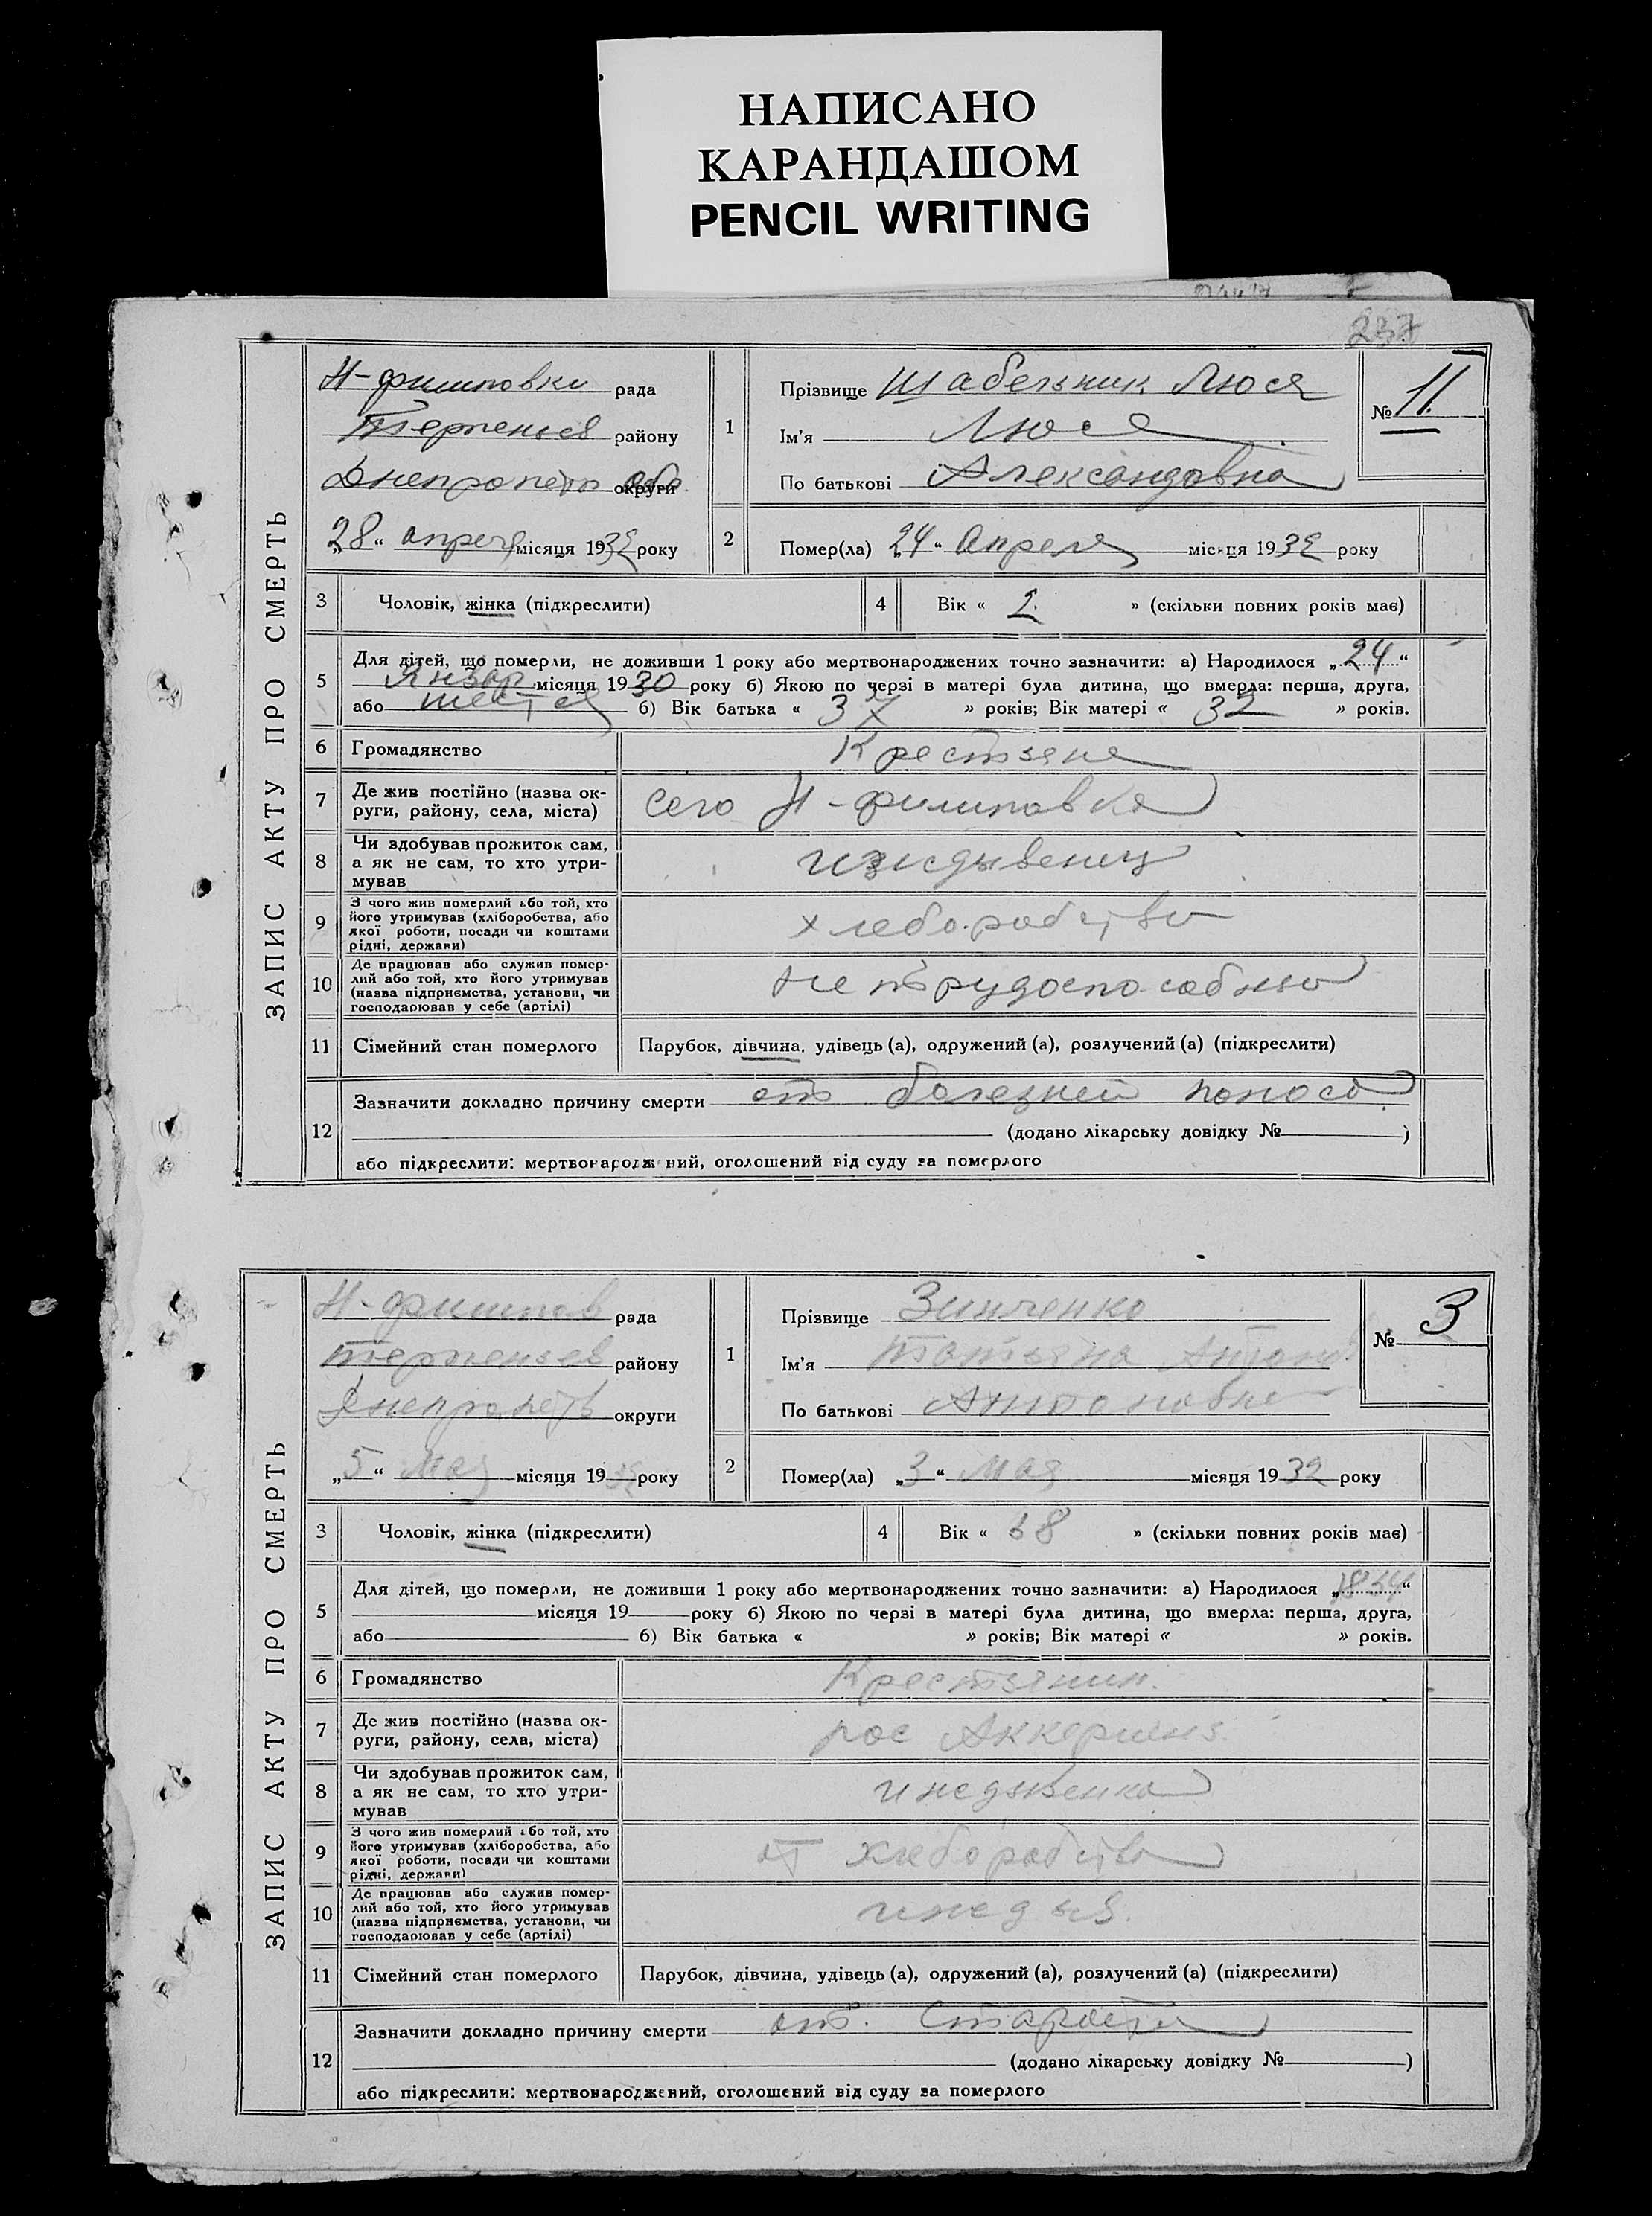 НАПИСАНО
КАРАНДАШОМ
PENCIL WRITING
237
ЗАПИС АКТУ ПРО СМЕРТЬ
Н-филиповки рада
Терпеньев району
Днепропетр обл округи
„28“ апреля місяця 1932 року
1
Прізвище Шабельник Люся
Ім'я Люся
По батькові Александовна
№ 11.
2
Помер(ла) „24“ Апреля місяця 1932 року
3 Чоловік, жінка (підкреслити)
4 Вік « 2 » (скільки повних років має)
5
Для дітей, що померли, не доживши 1 року або мертвонароджених точно зазначити: а) Народилося „24“
Январ місяця 1930 року б) Якою по черзі в матері була дитина, що вмерла: перша, друга,
або шестая б) Вік батька « 37 » років; Вік матері « 32 » років.
6 Громадянство Крестяне
7 Де жив постійно (назва ок-
руги, району, села, міста) село Н-филиповка
8 Чи здобував прожиток сам,
а як не сам, то хто утри-
мував
9 З чого жив померлий або той, хто
його утримував (хліборобства, або
якої роботи, посади чи коштами
рідні, держави) хлеборобство
10 Де працював або служив помер-
лий або той, хто його утримував
(назва підприємства, установи, чи
господарював у себе (артілі) нетрудоспособно
11 Сімейний стан померлого Парубок, дівчина, удівець (а), одружений (а), розлучений (а) (підкреслити)
12
Зазначити докладно причину смерти от болезней поноса
(додано лікарську довідку № )
або підкреслити: мертвонароджений, оголошений від суду за померлого
ЗАПИС АКТУ ПРО СМЕРТЬ
Н-филипов рада
Терпеньев району
Днепропетр округи
„5“ Мая місяця 1932 року
1
Прізвище Зинченко
Ім'я Татьяна Антонов
По батькові Антоновна
№ 3
2
Помер(ла) „3“ Мая місяця 1932 року
3 Чоловік, жінка (підкреслити)
4 Вік « 68 » (скільки повних років має)
5
Для дітей, що померли, не доживши 1 року або мертвонароджених точно зазначити: а) Народилося „ “
місяця 19 року б) Якою по черзі в матері була дитина, що вмерла: перша, друга,
або б) Вік батька « » років; Вік матері « » років.
6 Громадянство Крестянин.
7 Де жив постійно (назва ок-
руги, району, села, міста) пос
8 Чи здобував прожиток сам,
а як не сам, то хто утри-
мував
9 З чого жив померлий або той, хто
його утримував (хліборобства, або
якої роботи, посади чи коштами
рідні, держави) от хлеборобства
10 Де працював або служив помер-
лий або той, хто його утримував
(назва підприємства, установи, чи
господарював у себе (артілі)
11 Сімейний стан померлого Парубок, дівчина, удівець (а), одружений (а), розлучений (а) (підкреслити)
12
Зазначити докладно причину смерти от. Старости
(додано лікарську довідку № )
або підкреслити: мертвонароджений, оголошений від суду за померлого